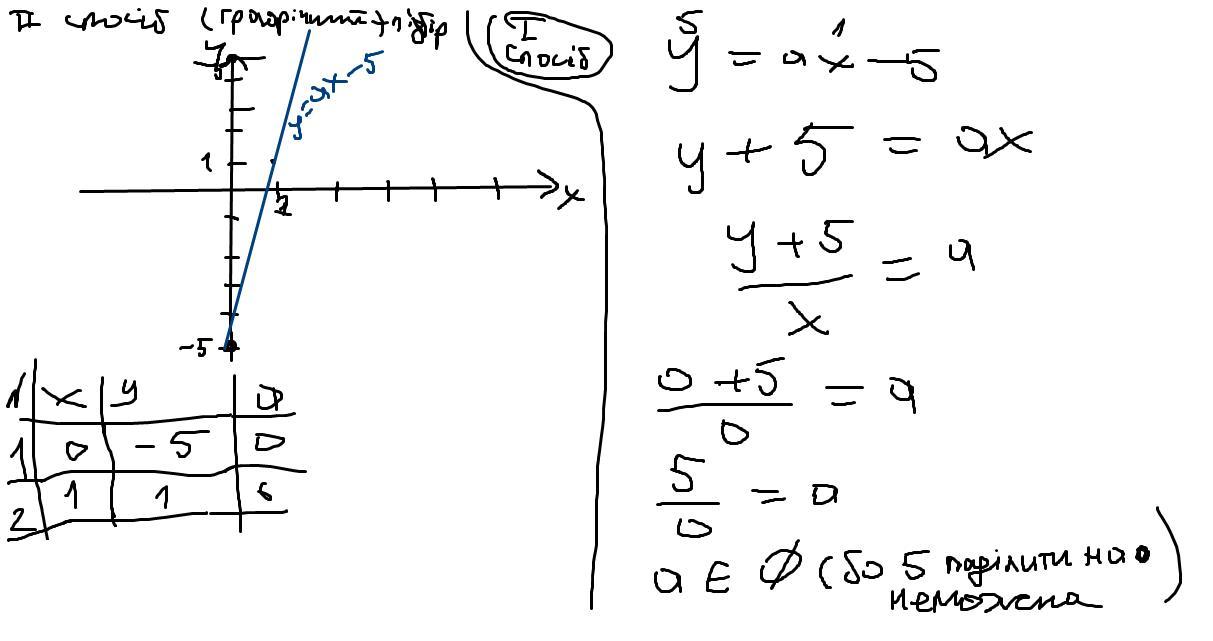 II спосіб (графічний + підбір
y
5
y=ax-5
1
1
x
-5
№ x y a
1 0 -5 0
2 1 1 6
I
спосіб
y = ax - 5
y + 5 = ax
y + 5 / x = a
0 + 5 / 0 = a
5 / 0 = a
a ∈ ∅ (бо 5 поділити на 0
неможена)